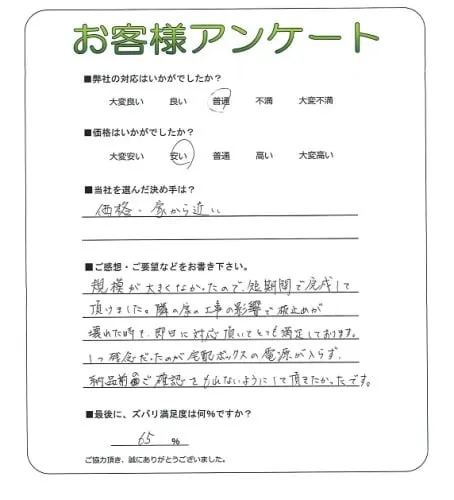 お客様アンケート
■弊社の対応はいかがでしたか?
大変良い 良い 普通 不満 大変不満
■価格はいかがでしたか?
大変安い 安い 普通 高い 大変高い
■当社を選んだ決め手は?
価格・家から近い
■ご感想・ご要望などをお書き下さい。
規模が大きくなかったので、短期間で完成して
頂けました。隣の家の工事の影響で
壊れた時も、即日に対応頂いてとても満足しております。
1つ残念だったのが宅配ボックスの電源が入らず、
納品前のご確認をもれないようにして頂きたかったです。
■最後に、ズバリ満足度は何%ですか?
65 %
ご協力頂き、誠にありがとうございました。